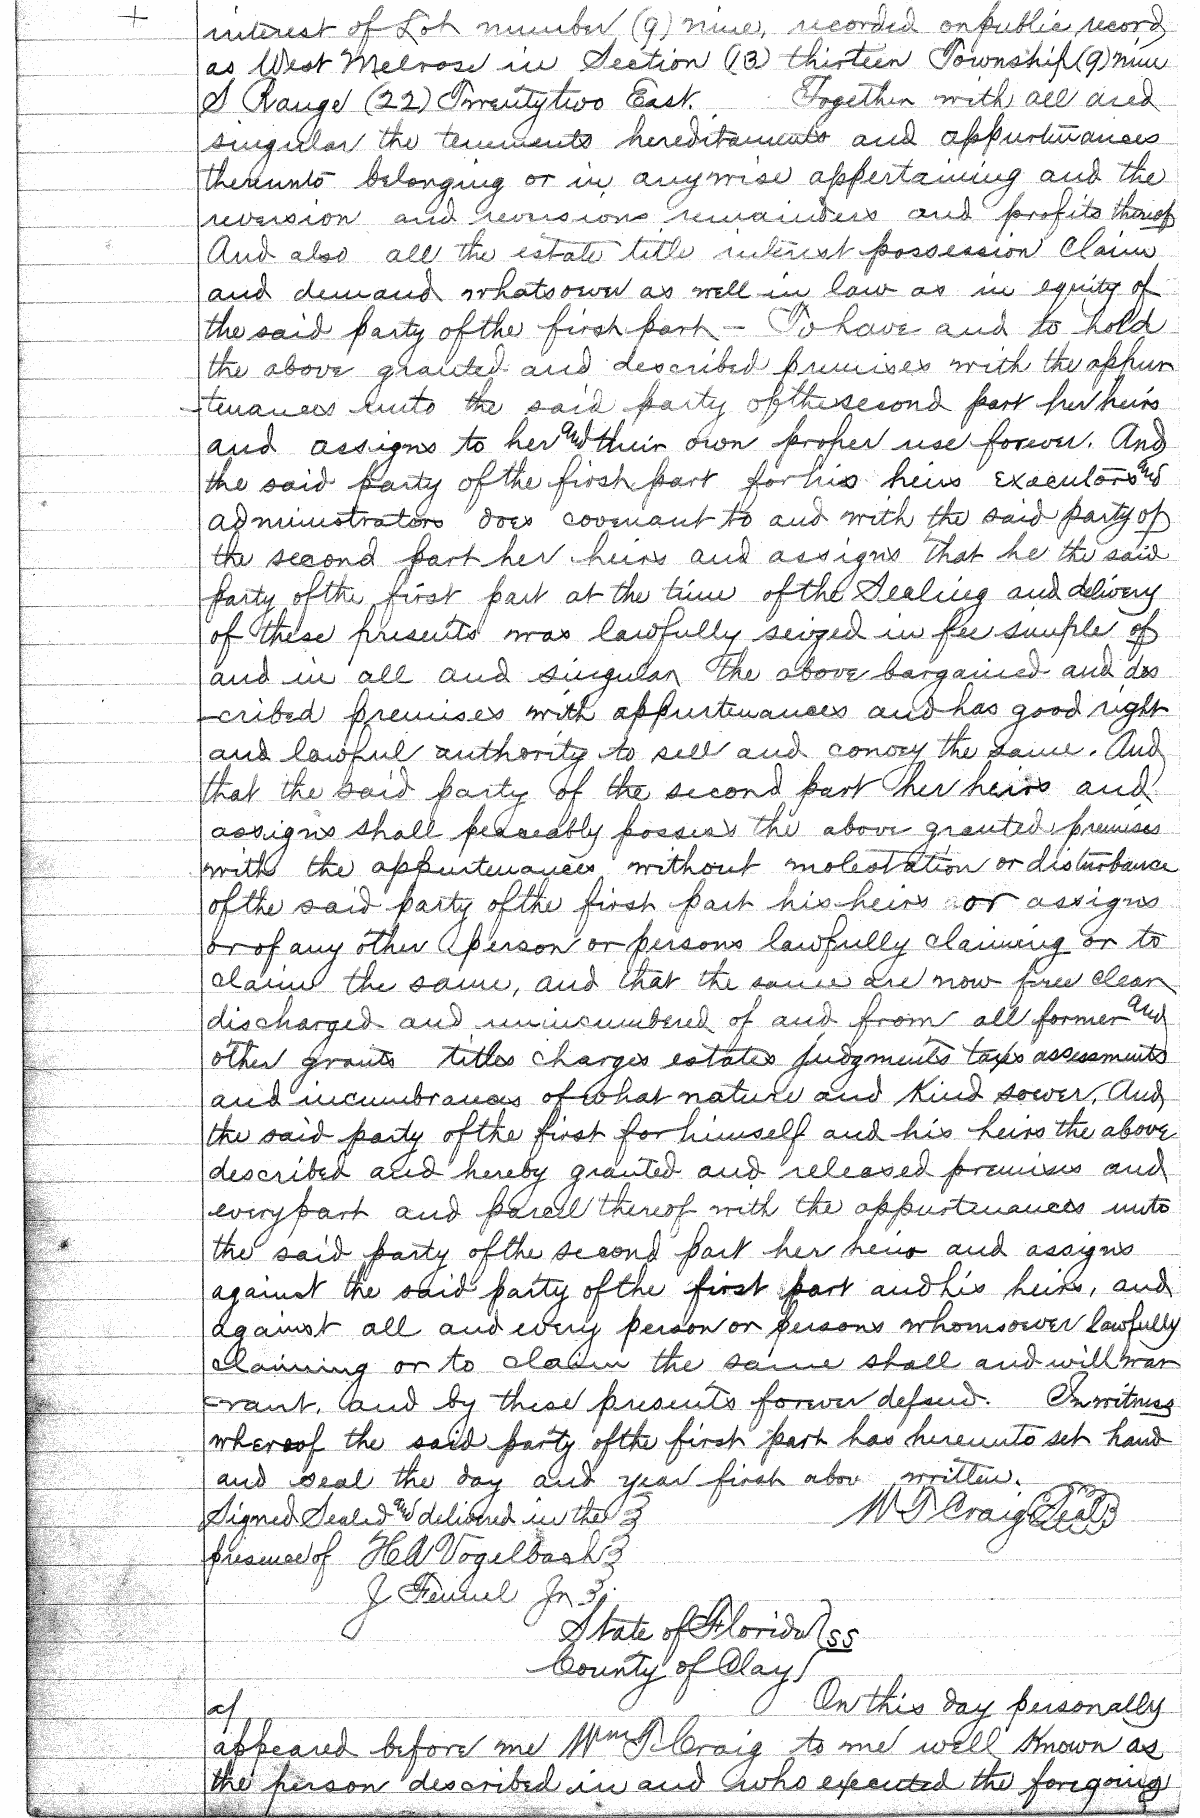 interest of Lot number (9) nine, recorded on public record
as West Melrose in Section (13) thirteen Township (9) nine
S Range (22) Twentytwo East. Together with all and
singular the tenements hereditaments and appurtenances
thereunto belonging or in anywise appertaining and the
reversion and reversions remainders and profits thereof
And also all the estate title interest possession Claim
and demand whatsoever as well in law as in equity of
the said party of the first part – To have and to hold
the above granted and described premises with the appur
-tenances unto the said party of the second part her heirs
and assigns to her and their own proper use forever. And
the said party of the first part for his heirs executors and
administrators does covenant to and with the said party of
the second part her heirs and assigns that he the said
party of the first part at the time of the Sealing and delivery
of these presents was lawfully seized in fee simple of
and in all and singular the above bargained and des
-cribed premises with appurtenances and has good right
and lawful authority to sell and convey the same. And
that the said party of the second part her heirs and
assigns shall peaceably possess the above granted premises
with the appurtenances without molestation or disturbance
of the said party of the first part his heirs or assigns
or of any other person or persons lawfully claiming or to
claim the same, and that the same are now free clear
discharged and unincumbered of and from all former and
other grants titles charges estates judgments taxes assessments
and incumbrances of what nature and Kind soever. And
the said party of the first for himself and his heirs the above
described and hereby granted and released premises and
every part and parcel thereof with the appurtenances unto
the said party of the second part her heirs and assigns
against the said party of the first part and his heirs, and
against all and every person or persons whomsoever lawfully
claiming or to claim the same shall and will war
-rant, and by these presents forever defend. In witness
whereof the said party of the first part has hereunto set hand
and seal the day and year first abov written.
Signed Sealed and delivered in the W P Craig Seal
presence of H A Vogelbach
J Fennel Jr
State of Florida ss
County of Clay
On this day personally
appeared before me Wm P. Craig to me well Known as
the person described in and who executed the foregoing